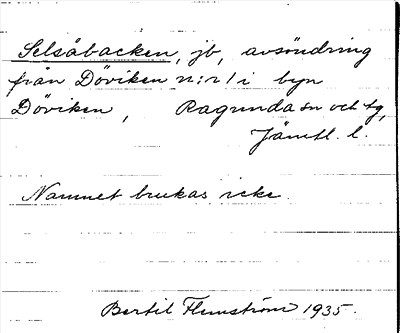 Selsåbacken, jb, avsöndring
från Döviken n:r 1 i byn
Döviken, Ragunda sn och tg,
Jämtl. l.
Namnet brukas icke.
Bertil Flemström 1935.